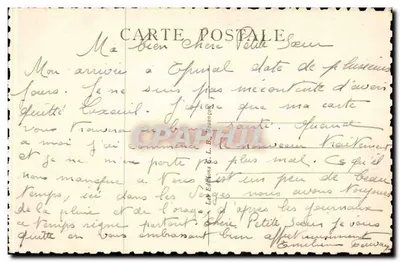 CARTE POSTALE
Ma bien chère Petite Sœur
Mon arrivée à Epinal date de plusieurs
jours. Je ne suis pas mécontente d'avoir
quitté Luxeuil. J'espère que ma carte
vous trouvera santé. Quand
a moi j'ai nouveau traitement
et je ne m'en porte pas plus mal. Ce qu'il
nous manque a Nous c'est un peu de beau
Temps, ici dans les Vosges nous avons toujours
de la pluie et de l'orage d'après les journaux
ce temps règne partout. Chère Petite Sœur je vous
quitte en vous embrassant bien affectueusement
Emilienne
CPAPHIL